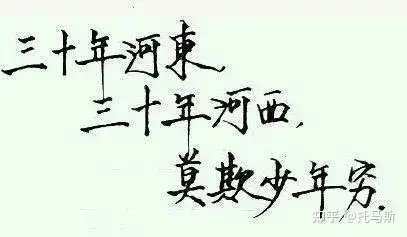 三十年河東,
三十年河西,
莫欺少年穷.
知乎 @托马斯